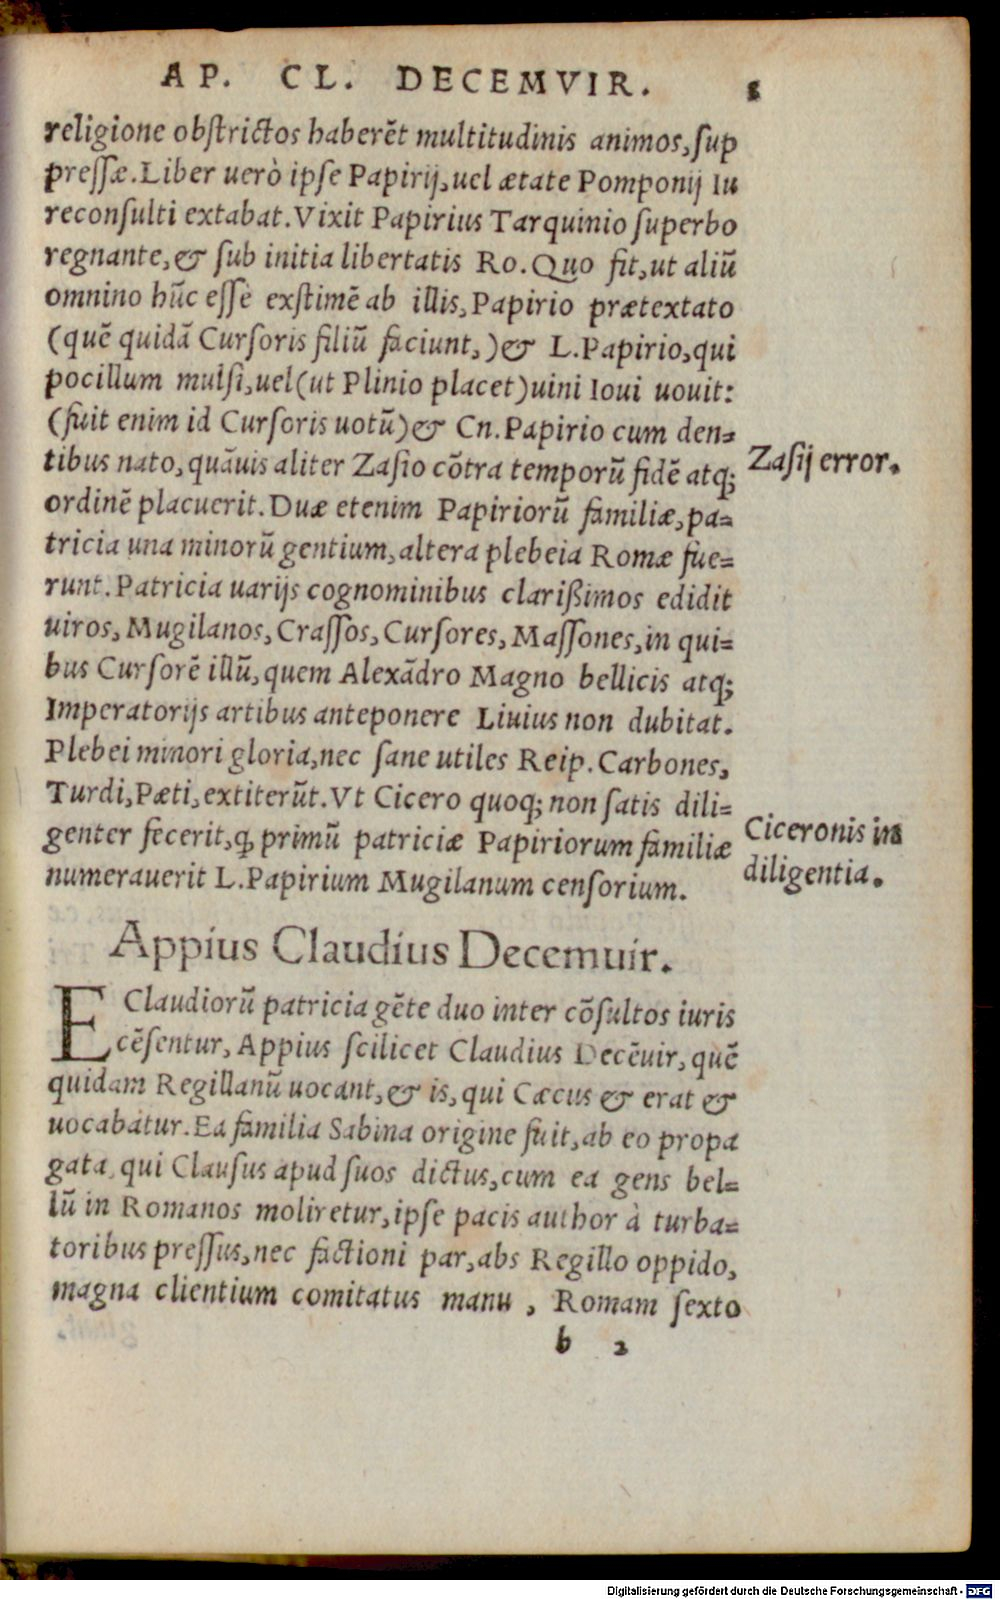 AP. CL. DECEMVIR.
religione obstrictos haberẽt multitudinis animos, sup
pressæ. Liber uerò ipse Papirij, uel ætate Pomponij Iu
reconsulti extabat. Vixit Papirius Tarquinio superbo
regnante, & sub initia libertatis Ro. Quo fit, ut aliũ
omnino hũc esse exstimẽ ab illis, Papirio prætextato
(quẽ quidã Cursoris filiũ faciunt,) & L. Papirio, qui
pocillum mulsi, uel (ut Plinio placet) uini Ioui uouit:
(fuit enim id Cursoris uotũ) & Cn. Papirio cum den=
tibus nato, quãuis aliter Zasio cõtra temporũ fidẽ atq;
Zasij error.
ordinẽ placuerit. Duæ etenim Papiriorũ familiæ, pa=
tricia una minorũ gentium, altera plebeia Romæ fue=
runt. Patricia uarijs cognominibus clarißimos edidit
uiros, Mugilanos, Crassos, Cursores, Massones, in qui=
bus Cursorẽ illũ, quem Alexãdro Magno bellicis atq;
Imperatorijs artibus anteponere Liuius non dubitat.
Plebei minori gloria, nec sane utiles Reip. Carbones,
Turdi, Pæti, extiterũt. Vt Cicero quoq; non satis dili=
genter fecerit, ꝙ primũ patriciæ Papiriorum familiæ
Ciceronis in
diligentia.
numerauerit L. Papirium Mugilanum censorium.
Appius Claudius Decemuir.
E Claudiorũ patricia gẽte duo inter cõsultos iuris
cẽsentur, Appius scilicet Claudius Decẽuir, quẽ
quidam Regillanũ uocant, & is, qui Cæcus & erat &
uocabatur. Ea familia Sabina origine fuit, ab eo propa
gata, qui Clausus apud suos dictus, cum ea gens bel=
lũ in Romanos moliretur, ipse pacis author à turba=
toribus pressus, nec factioni par, abs Regillo oppido,
magna clientium comitatus manu, Romam sexto
b 2
Digitalisierung gefördert durch die Deutsche Forschungsgemeinschaft - DFG